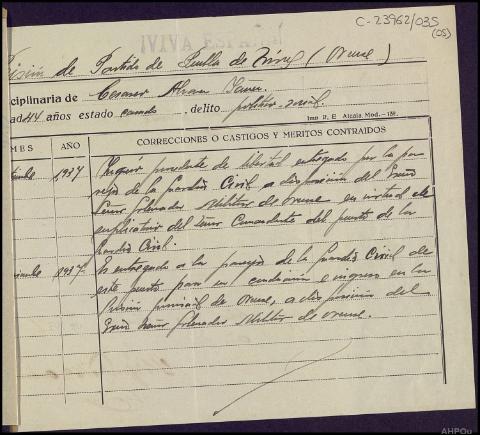 C-23962/035
(05)
¡VIVA ESPAÑA!
Prisión de Partido de Puebla de Trives (Orense)
ciplinaria de Cesareo Alvarez Yañez
ad 44 años estado casado, delito politico-social.
Imp. R. E. Alcala. Mod.-15
MES AÑO CORRECCIONES O CASTIGOS Y MERITOS CONTRAIDOS
1937 Ingresó procedente de libertad entregado por la pa
reja de la Guardia Civil a disposición del Excmo
Señor Gobernador Militar de Orense en virtud de
suplicatorio del Señor Comandante del puesto de la
Guardia Civil.
1937 Es entregado a la pareja de la Guardia Civil de
este puesto para su conducción e ingreso en la
Prisión provincial de Orense, a disposición del
Excmo Señor Gobernador Militar de Orense.
AHPOu